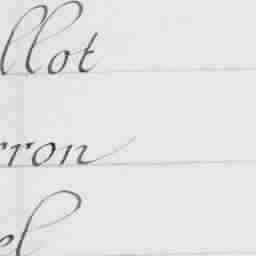 llot
rron
el